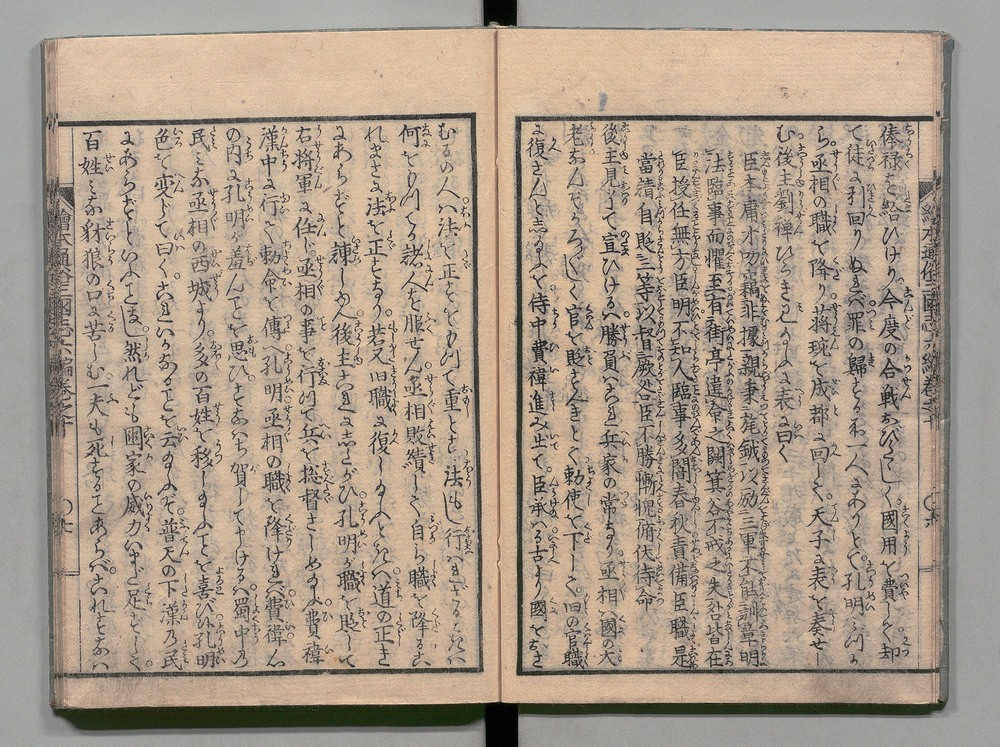 俸禄を給ひけり今度の合戦おびたゝしく國用を費して却
て徒に引回りぬれば罪の歸する所一人にありとて孔明みづか
ら丞相の職を降り蔣琬を成都に回して天子に表を奏せし
む後主劉禅ひらき見たまふに表に曰く
臣本庸才叨竊非據親秉旄鉞以勵三軍不能訓章明
法臨事而懼至有街亭違命之闕箕谷不戒之失咎皆在
臣授任無方臣明不知人臨事多闇春秋責備臣職是
當請自貶三等以督厥咎臣不勝慚愧俯伏待命
後主見了て宣ひけるハ勝負ハこれ兵家の常なり丞相ハ國の大
老なんぞかろ〴〵しく官を貶すべきとて勅使を下して旧の官職
に復さんとしたまふを侍中費禕進み出て臣承ハる古より國をおさ
むるの人ハ法を正すをもつて重とす法もし行ハれざるときハ
何をもつてか諸人を服せん丞相敗績して自ら職を降るこ
れまさに法を正すなり若又旧職に復したまふときハ道の正き
にあらずと諫しめ後主これにしたがひ孔明が職を貶して
右将軍に任じ丞相の事を行つて兵を総督せしめたまふ費禕
漢中に行て勅命を傳へ孔明丞相の職を降けれバ費禕心
の内に孔明が羞んことを思ひすなハち賀して申けるハ蜀中の
民ミな丞相の西城より多の百姓を移したまふことを喜び孔明
色を変じて曰くこれハいかなることを云たまふぞ普天の下漢乃民
にあらずといふことなし然れども國家の威力いまだ足ずして
百姓ミな豺狼の口に苦しむ一夫も死することあらバこれミなハ
繪本通俗三國志六編巻之十